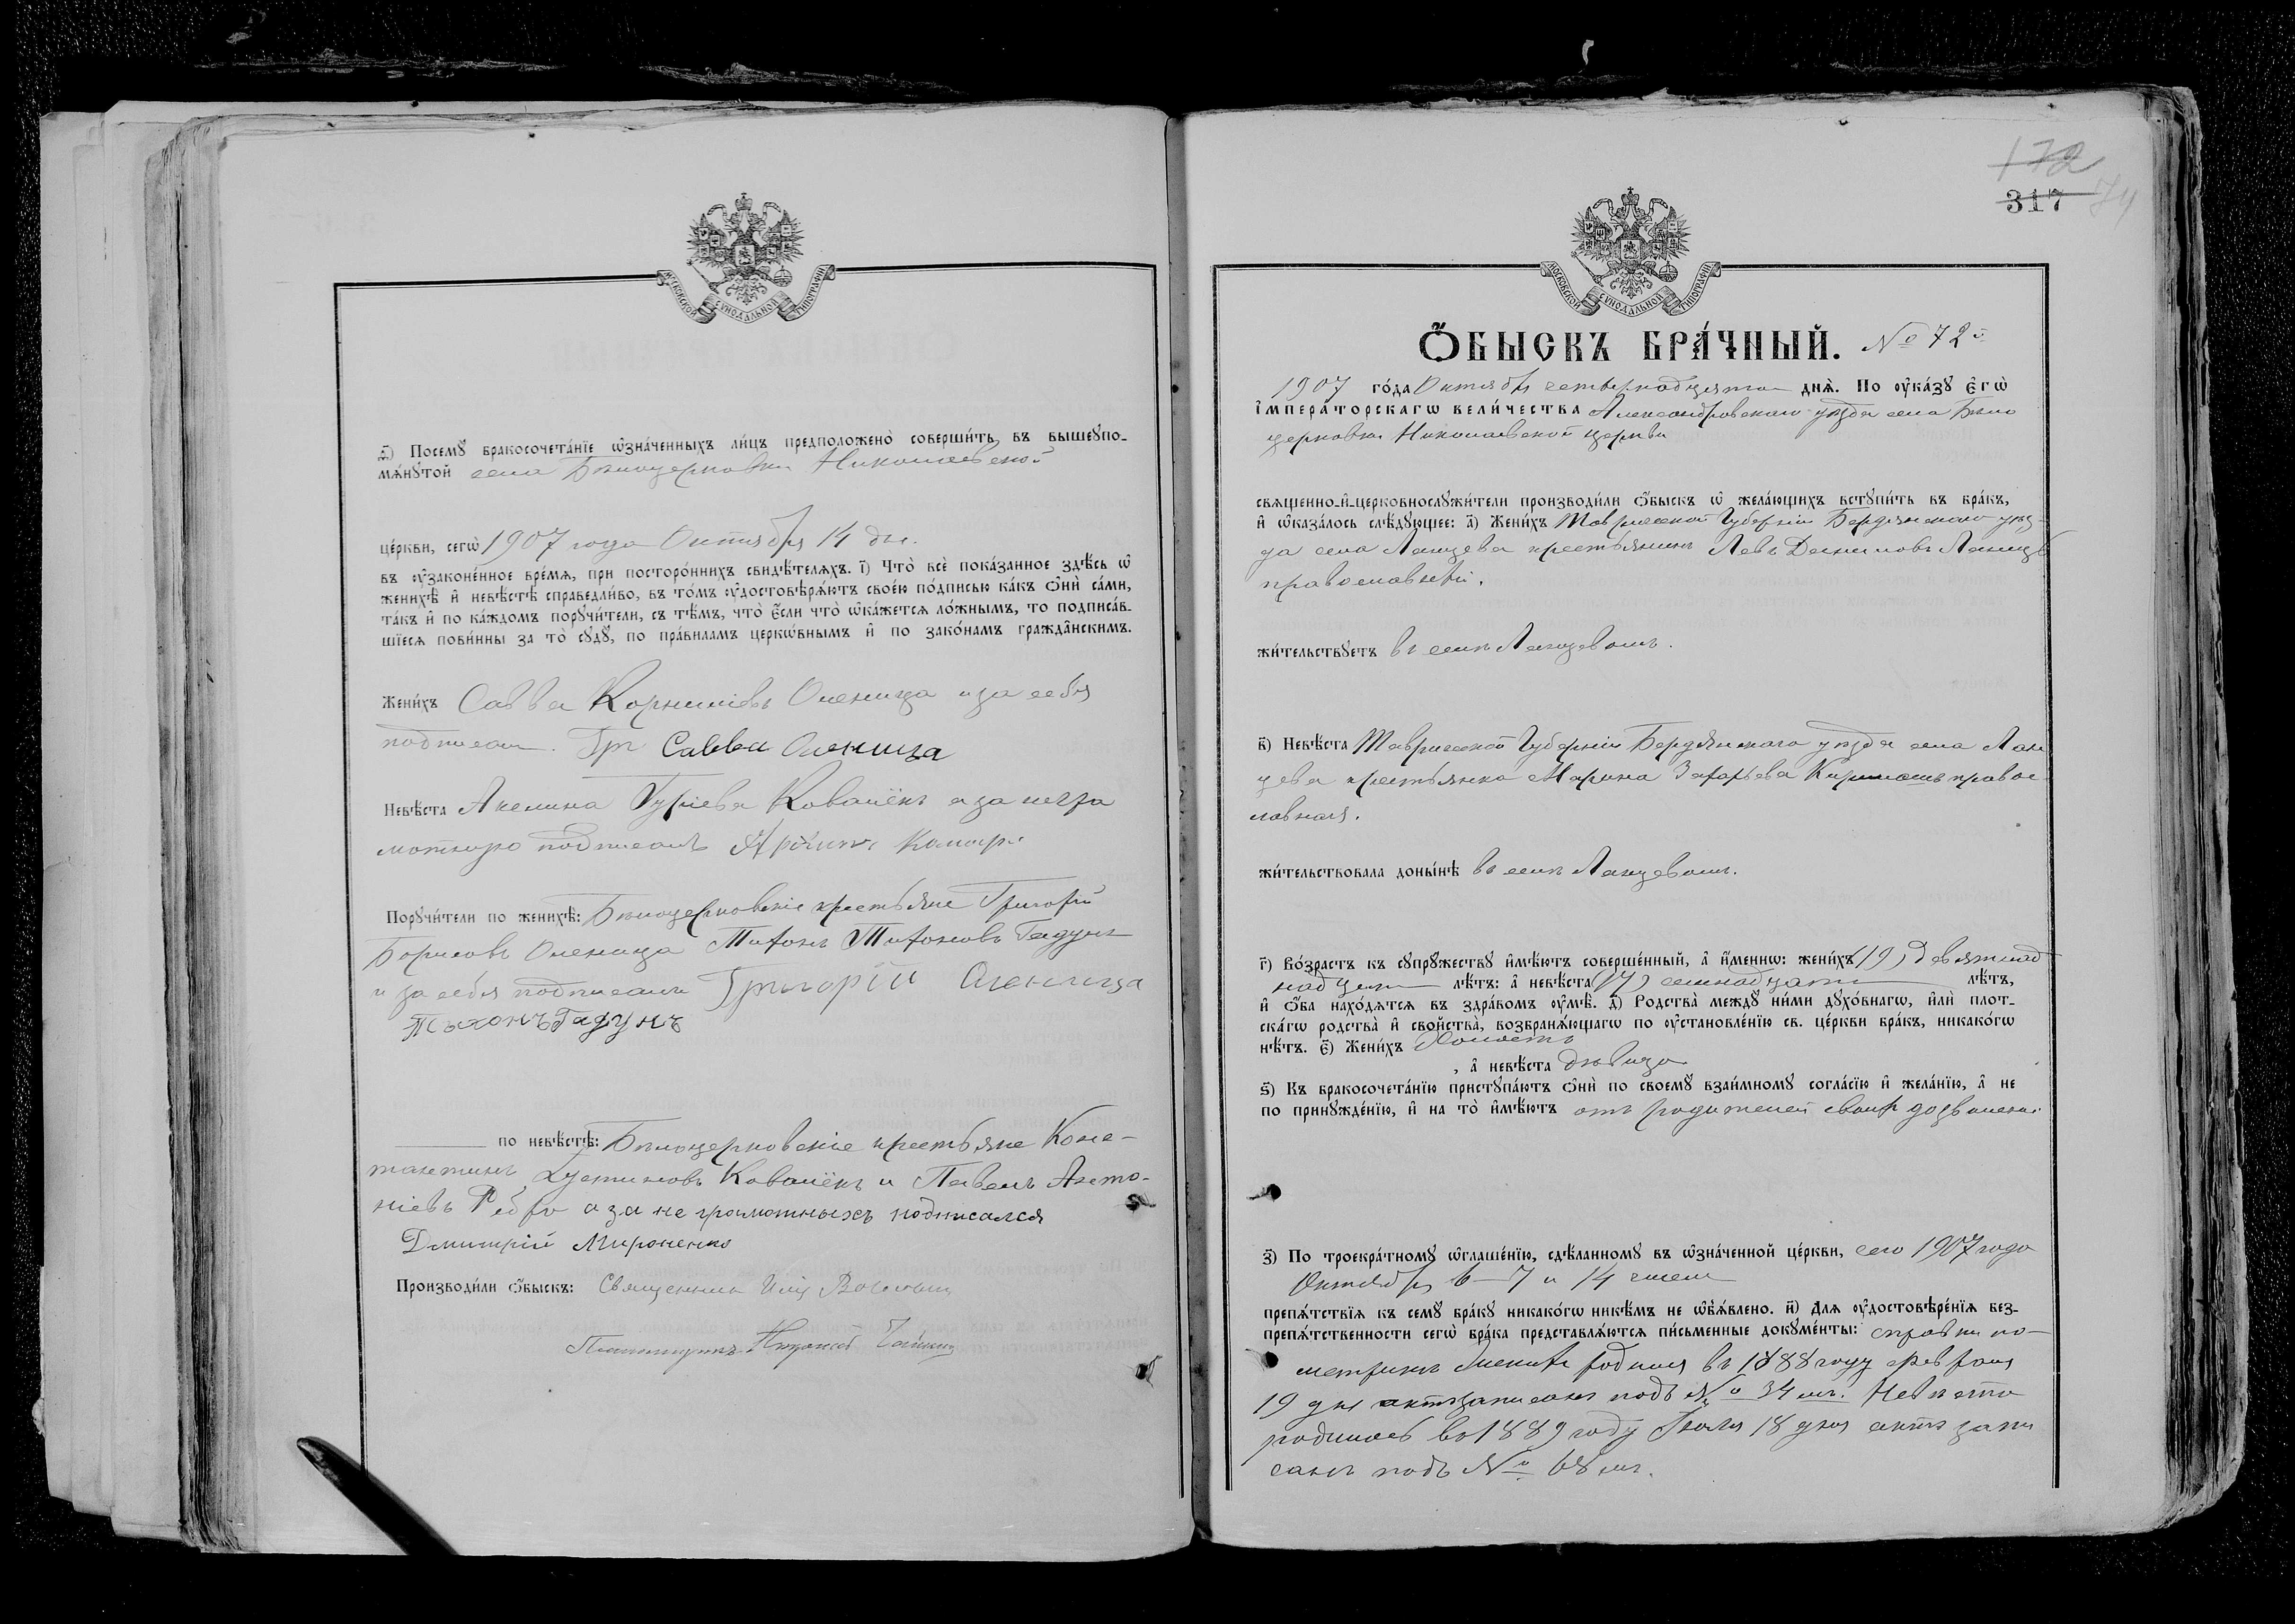 МОСКОВСКОЙ СУНОДАЛЬНОЙ ТИПОГРАФІИ
Ѳ҃) Посемꙋ̀ бракосочета́нїе ѡ҆зна́ченныхъ ли́цъ предположено̀ соверши́ть въ вышеꙋпо-
мѧ́нꙋтой села Бѣлоцерковки Николаевской
це́ркви, сегѡ̀ 1907 года Октября 14 дн.
въ ᲂу҆зако́ненное вре́мѧ, при посторо́ннихъ свидѣ́телѧхъ. І҃) Что̀ всѐ пока́занное здѣ́сь ѡ҆
женихѣ̀ и҆ невѣ́стѣ справедли́во, въ то́мъ ᲂу҆достовѣрѧ́ютъ свое́ю по́дписью ка́къ ѻ҆нѝ са́ми,
та́къ и҆ по ка́ждомъ порꙋчи́тели, съ тѣ́мъ, что̀ є҆́сли что̀ ѡ҆ка́жетсѧ ло́жнымъ, то подписа́в-
шїесѧ пови́нны за то̀ сꙋдꙋ̀, по пра́виламъ церкѡ́внымъ и҆ по зако́намъ гражда́нскимъ.
Жени́хъ Савва Корниліевъ Оленица и за себя
подписал. Гр Савва Оленица
Невѣ́ста Акелина Гуріева Ковалёкъ а за негра
мотную подписалъ
Порꙋчи́тели по женихѣ̀: Бѣлоцерковскіе крестьяне Григорій
Борисовъ Оленица Тихонъ Тихоновъ Гадунъ
и за себя подписали Григорій Оленица
Тихонъ Гадунъ
по невѣ́стѣ: Бѣлоцерковскіе крестьяне Конс-
тантинъ Устиновъ Ковалёкъ и Павелъ Анто-
ніевъ Ребро а за не грамотныхъ подписался
Дмитрій Мироненко
Производи́ли ѻ҆́быскъ: Священникъ
172
317 74
МОСКОВСКОЙ СУНОДАЛЬНОЙ ТИПОГРАФІИ
Ѻ҆́БЫСКЪ БРА́ЧНЫЙ. № 72й
1907 го́да Октября четырнадцятого днѧ̀. По ᲂу҆ка́зꙋ є҆гѡ̀
і҆мпера́торскагѡ вели́чества Александровскаго уѣзда села Бѣло
церковки Николаевской церкви
свѧщенно-и҆-церковнослꙋжи́тели производи́ли ѻ҆́быскъ ѡ҆ жела́ющихъ встꙋпи́ть въ бра́къ,
и҆ ѡ҆каза́лось слѣ́дꙋющее: а҃) Жени́хъ Таврической Губерніи Бердянскаго уѣз-
да села Ланцева крестьянинъ Левъ Даниловъ
православный.
жи́тельствꙋетъ въ селѣ Ланцевомъ.
в҃) Невѣ́ста Таврической Губерніи Бердянскаго уѣзда села Лан
цева крестьянка Марина Захарьева православ-
ловная.
жи́тельствовала доны́нѣ въ селѣ Ланцевомъ.
г҃) Во́зрастъ къ сꙋпрꙋ́жествꙋ и҆мѣ́ютъ соверше́нный, а҆ и҆́меннѡ: жени́хъ (19) девятнад
надцети лѣ́тъ: а҆ невѣ́ста (17) семнадцати лѣ́тъ,
и҆ ѻ҆́ба нахо́дѧтсѧ въ здра́вомъ ᲂу҆мѣ̀. д҃) Родства̀ междꙋ̀ ни́ми дꙋхо́внагѡ, и҆лѝ плот-
ска́гѡ родства̀ и҆ сво́йства̀, возбранѧ́ющагѡ по ᲂу҆становле́нїю св. це́ркви бра́къ, никако́гѡ
нѣ́тъ. є҃) Жени́хъ Холостъ
, а҆ невѣ́ста дѣвица
ѕ҃) Къ бракосочета́нїю пристꙋпа́ютъ ѻ҆нѝ по своемꙋ̀ взаи́мномꙋ согла́сїю и҆ жела́нїю, а҆ не
по принꙋжде́нїю, и҆ на то̀ и҆мѣ́ютъ отъ родителей своихъ дозволеніе
з҃) По троекра́тномꙋ ѡ҆глаше́нїю, сдѣ́ланномꙋ въ ѡ҆зна́ченной це́ркви, сего 1907 года
Октября 6 7 и 14 числа
препѧ́тствїѧ къ семꙋ̀ бра́кꙋ никако́гѡ никѣ́мъ не ѡ҆б̾ѧ́влено. и҃) Длѧ ᲂу҆достовѣре́нїѧ без-
препѧ́тственности сегѡ̀ бра́ка представлѧ́ютсѧ пи́сьменные докꙋме́нты: справки по
метрикѣ Женихъ родился въ 1888 году Февраля
19 дня актъ записанъ подъ № 34 мъ. Невѣста
родилась въ 1889 году Іюля 18 дня актъ запи
санъ подъ № 68 мъ.